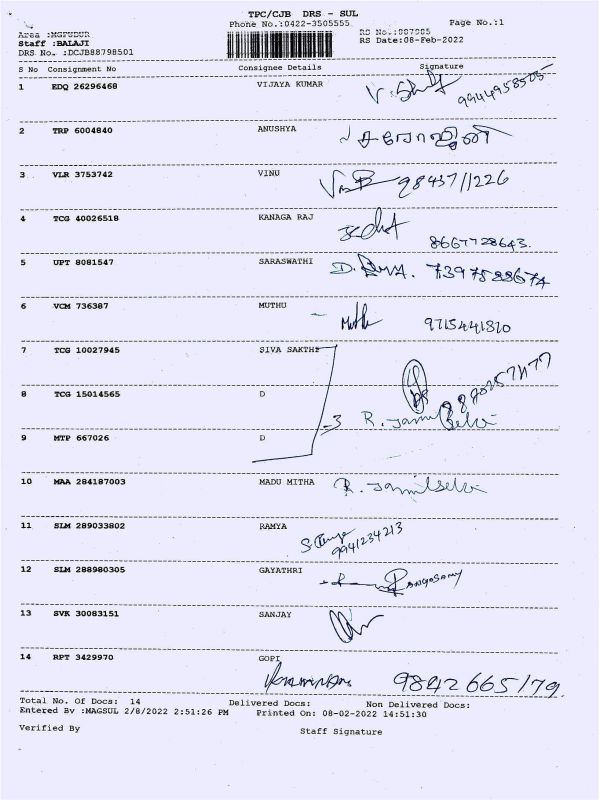 TPC/CJB DRS - SUL
Phone No.:0422-3505555 Page No.:1
Area :MGFUDUR RS No.:887985
Staff :BALAJI RS Date:08-Feb-2022
DRS No. :DCJB88798501
S No Consignment No Consignee Details Signature
1 EDQ 26296468 VIJAYA KUMAR 9944958505
2 TRP 6004840 ANUSHYA சரோஜினி
3 VLR 3753742 VINU 9843711226
4 TCG 40026518 KANAGA RAJ 8667728643.
5 UPT 8081547 SARASWATHI 7397588674
6 VCM 736387 MUTHU Muthu 9715441810
7 TCG 10027945 SIVA SAKTHI
8 TCG 15014565 D
9 MTP 667026 D
-3 R. Jamilselvi
10 MAA 284187003 MADU MITHA R. Jamilselvi
11 SLM 289033802 RAMYA 9941234213
12 SLM 288980305 GAYATHRI Rangasamy
13 SVK 30083151 SANJAY
14 RPT 3429970 GOPI 9842665179.
Total No. Of Docs: 14 Delivered Docs: Non Delivered Docs:
Entered By :MAGSUL 2/8/2022 2:51:26 PM Printed On: 08-02-2022 14:51:30
Verified By Staff Signature